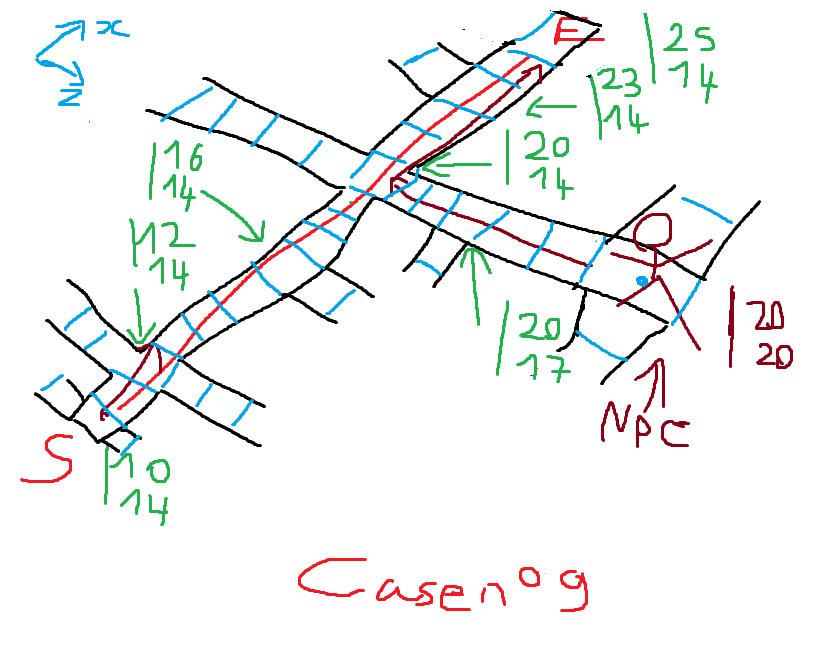 x
z
E
25
14
23
14
20
14
16
14
12
14
20
17
20
20
NPC
S
10
14
Case n° 9